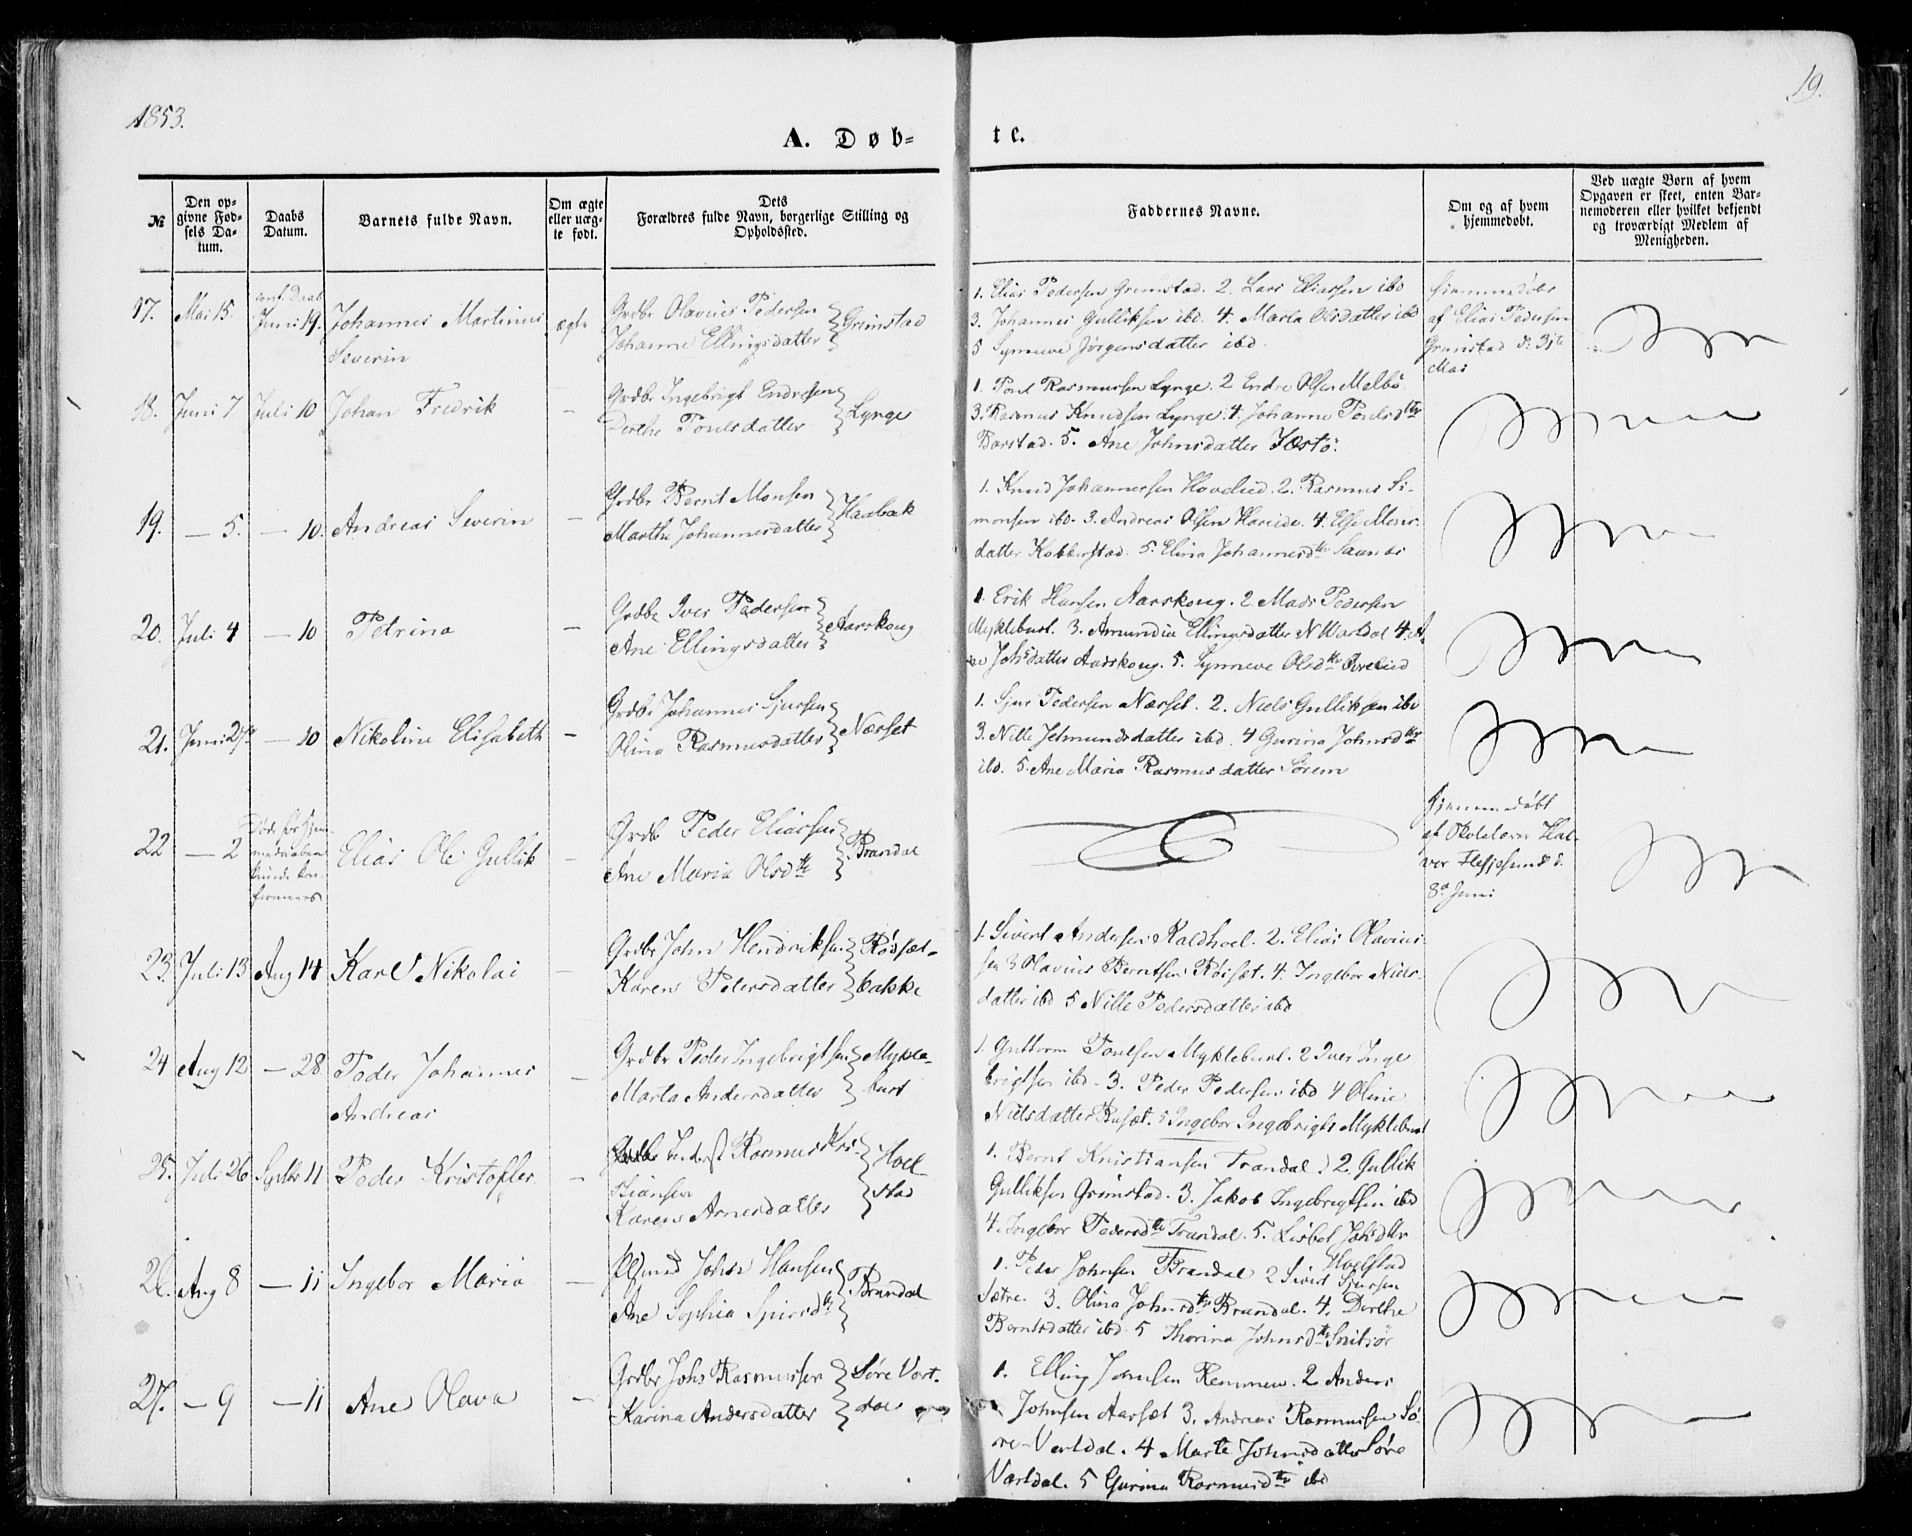 1853.
19.
A. Døb-
te.
№
Den op-
givne Fød-
sels Da-
tum.
Daabs
Datum.
Barnets fulde Navn.
Om ægte
eller uæg-
te født.
Dets
Forældres fulde Navn, borgerlige Stilling og
Opholdssted.
Faddernes Navne.
Om og af hvem
hjemmedøbt.
Ved uægte Børn af hvem
Opgaven er skeet, enten Bar-
nemoderen eller hvilket bekjendt
og troværdigt Medlem af
Menigheden.
17. Mai 15. conf. Daab Juni 19. Johannes Martinus Severin ægte
Grdbr Olavius Pedersen
Johanne Ellingsdatter } Grimstad
1. Elias Pedersen Grimstad. 2. Lars Eliassen ibd
3. Johannes Gulliksen ibd. 4. Marta Olsdatter ibd
5 Synneve Jørgensdatter ibd.
hjemmedøbt
af Elias Pedersen
Grimstad d. 31te
Mai
18. Juni 7 Juli 10 Johan Fredrik —
Grdbr Ingebrigt Endresen
Derthe Poulsdatter } Lynge
1. Poul Rasmussen Lynge. 2 Endre Olsen Melbø
3. Rasmus Knudsen Lynge. 4. Johanne Poulsdtr
Barstad. 5. Ane Johnsdatter
19. — 5. — 10. Andreas Severin —
Grdbr Bernt Monsen
Marthe Johannesdatter } Haabak
1. Knud Johannessen Hovelied. 2. Rasmus Si-
monsen ibd. 3. Andreas Olsen Hareide. 4. Else Mons-
datter Kobberstad. 5. Elina Johannesdtr
20. Juli 4 — 10 Petrina —
Grdbr Iver Pedersen
Ane Ellingsdatter } Aarskoug
1. Erik Hansen Aarskoug. 2 Mads Pedersen
Myklebust. 3. Amundia Ellingsdatter N Wartdal 4. A-
ne Johsdatter Aarskoug. 5. Synneve Olsdtr
21. Juni 27 — 10 Nikoline Elisabeth —
Grdbr Johannes Sjursen
Olina Rasmusdatter } Næset
1. Sjur Pedersen Næset. 2. Niels Gulliksen ibd
3. Nille Jetmundsdatter ibd. 4 Gurina Johnsdtr
ibd. 5. Ane Maria Rasmusdatter Sørem
22 — 2 Døde før hjem-
medaaben
kunde kon-
firmeres Elias Ole Gullik —
Grdbr Peder Eliassen
Ane Maria Olsdtr } Brandal
Hjemmedøbt
af Skolelærer Hal-
vor Flesjesund d.
8de Juni
23. Juli 13 Aug 14 Karl Nikolai —
Grdbr John Hendriksen
Karen Pedersdatter } Røsæt-
bakke
1. Sivert Andersen Kaldhoel. 2. Elias Olavius-
sen 3 Olavius Berntsen Røisæt. 4. Ingebor Niels-
datter ibd 5 Nille Pedersdatter ibd
24 Aug 12 — 28 Peder Johannes
Andreas —
Grdbr Peder Ingebrigtsen
Marta Andersdatter } Mykle-
bust
1. Guttorm Poulsen Myklebust. 2 Iver Inge
brigtsen ibd. 3. Peder Pedersen ibd 4 Oline
Nielsdatter Røsæt. 5 Ingebor Ingebrigts Myklebust
25. Juli 26 Septbr 11 Peder Kristoffer —
Inderst Rasmus Kri-
stiansen
Karen Arnesdatter } Hoel-
stad
1. Bernt Kristiansen Trandal. 2. Gullik
Gulliksen Grimstad. 3. Jakob Ingebrigtsen ibd
4. Ingebor Pedersdtr Trandal. 5. Lisbet Johsdtr
Hoelstad
26. Aug 8 — 11 Ingebor Maria —
Plsmd Johan Hansen
Ane Sophia Sjursdtr } Brandal
1. Peder Johnsen Brandal 2 Sivert Sjursen
Sætre. 3. Olina Johnsdtr Brandal. 4. Derthe
Berntsdatter ibd. 5 Thorina Johnsdtr
27. — 9 — 11 Ane Olava —
Grdbr Johs Rasmussen
Karina Andersdatter } Søre Vart-
dal
1. Elling Jonsen Remmen. 2 Anders
Johnsen Aarsæt 3. Andreas Rasmussen Sø-
re-Vartdal. 4 Marte Johnsdatter Søre
Vartdal. 5 Gurina Rasmusdtr ibd